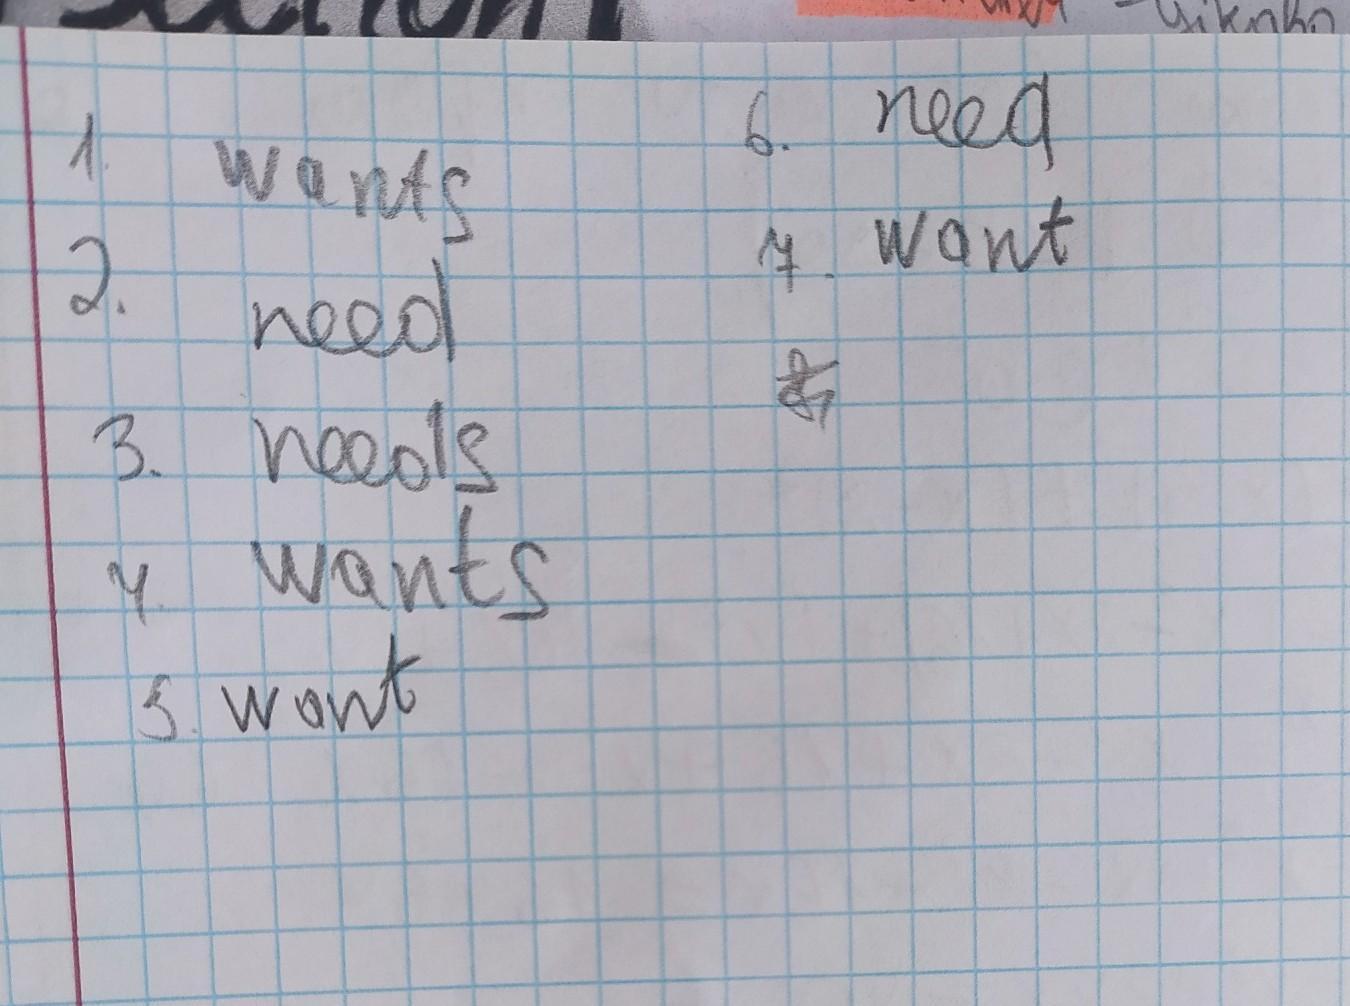 1. wants
2. need
3. needs
4. wants
5. want
6. need
7. want